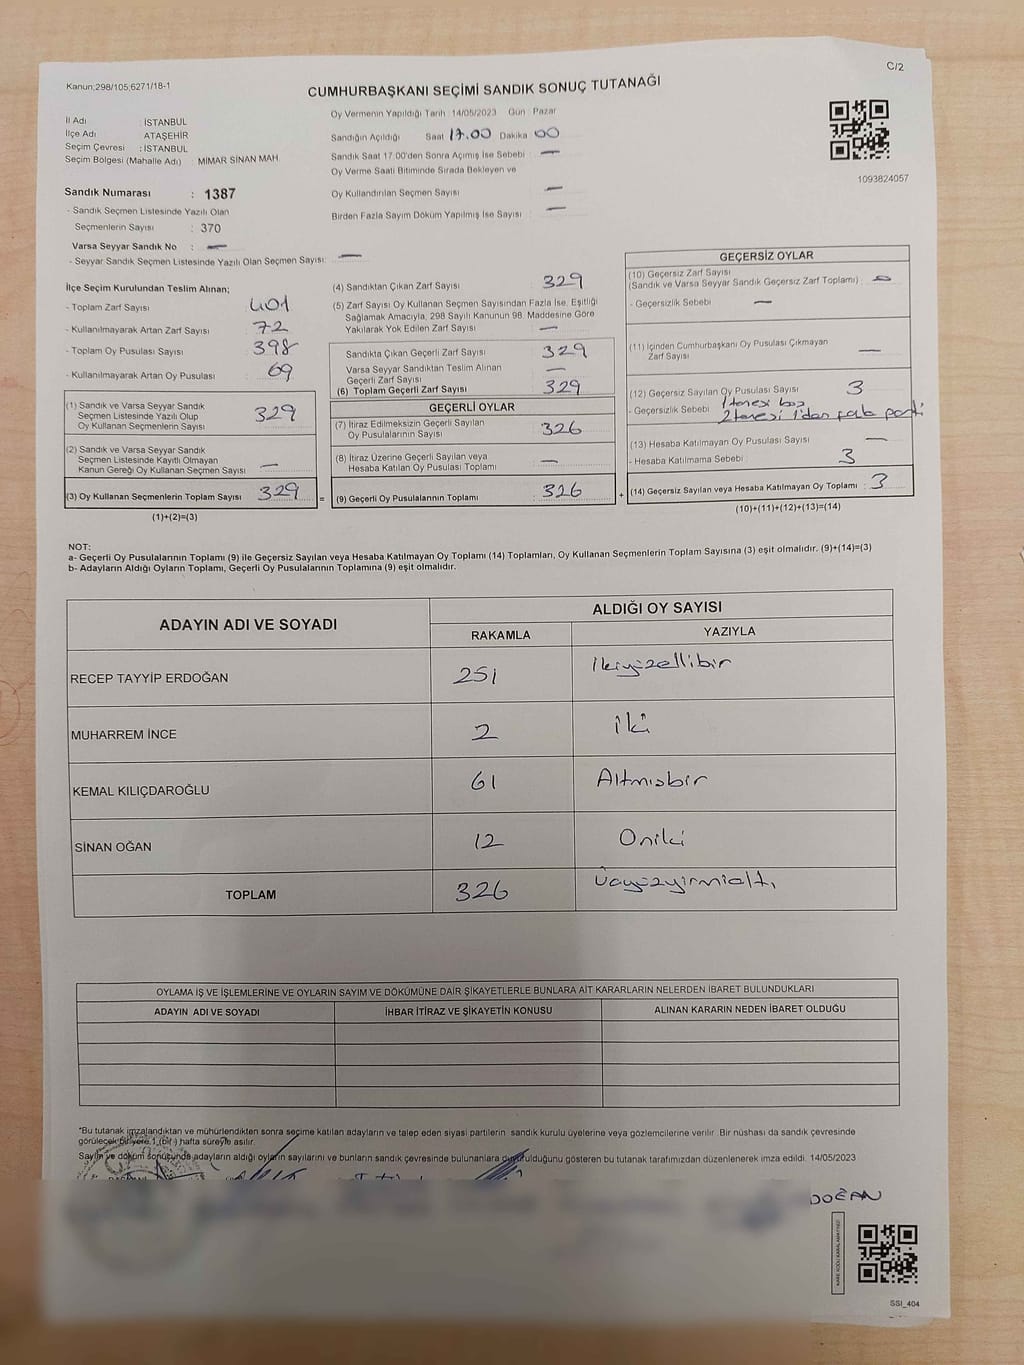 Kanun;298/105;6271/18-1
C/2
CUMHURBAŞKANI SEÇİMİ SANDIK SONUÇ TUTANAĞI
İl Adı : İSTANBUL
İlçe Adı ATAŞEHİR
Seçim Çevresi : İSTANBUL
Seçim Bölgesi (Mahalle Adı) : MİMAR SİNAN MAH.
Sandık Numarası : 1387
- Sandık Seçmen Listesinde Yazılı Olan
Seçmenlerin Sayısı : 370
Varsa Seyyar Sandık No : —
- Seyyar Sandık Seçmen Listesinde Yazılı Olan Seçmen Sayısı: —
Oy Vermenin Yapıldığı Tarih 14/05/2023 Gün Pazar
Sandığın Açıldığı Saat 17.00 Dakika 00
Sandık Saat 17.00'den Sonra Açımış İse Sebebi —
Oy Verme Saati Bitiminde Sırada Bekleyen ve
Oy Kullandırılan Seçmen Sayısı —
Birden Fazla Sayım Döküm Yapılmış İse Sayısı —
1093824057
İlçe Seçim Kurulundan Teslim Alınan;
- Toplam Zarf Sayısı 401
- Kullanılmayarak Artan Zarf Sayısı 72
- Toplam Oy Pusulası Sayısı 398
- Kullanılmayarak Artan Oy Pusulası 69
(1) Sandık ve Varsa Seyyar Sandık
Seçmen Listesinde Yazılı Olup
Oy Kullanan Seçmenlerin Sayısı 329
(2) Sandık ve Varsa Seyyar Sandık
Seçmen Listesinde Kayıtlı Olmayan
Kanun Gereği Oy Kullanan Seçmen Sayısı —
(3) Oy Kullanan Seçmenlerin Toplam Sayısı 329 =
(1)+(2)=(3)
(4) Sandıktan Çıkan Zarf Sayısı 329
(5) Zarf Sayısı Oy Kullanan Seçmen Sayısından Fazla İse, Eşitliği
Sağlamak Amacıyla, 298 Sayılı Kanunun 98. Maddesine Göre
Yakılarak Yok Edilen Zarf Sayısı —
Sandıkta Çıkan Geçerli Zarf Sayısı 329
Varsa Seyyar Sandıktan Teslim Alınan
Geçerli Zarf Sayısı —
(6) Toplam Geçerli Zarf Sayısı 329
GEÇERLİ OYLAR
(7) İtiraz Edilmeksizin Geçerli Sayılan
Oy Pusulalarının Sayısı 326
(8) İtiraz Üzerine Geçerli Sayılan veya
Hesaba Katılan Oy Pusulası Toplamı —
(9) Geçerli Oy Pusulalarının Toplamı 326 +
GEÇERSİZ OYLAR
(10) Geçersiz Zarf Sayısı
(Sandık ve Varsa Seyyar Sandık Geçersiz Zarf Toplamı)
- Geçersizlik Sebebi —
(11) İçinden Cumhurbaşkanı Oy Pusulası Çıkmayan
Zarf Sayısı —
(12) Geçersiz Sayılan Oy Pusulası Sayısı 3
- Geçersizlik Sebebi 1 tanesi boş
2 tanesi 1'den fazla parti
(13) Hesaba Katılmayan Oy Pusulası Sayısı —
- Hesaba Katılmama Sebebi 3
(14) Geçersiz Sayılan veya Hesaba Katılmayan Oy Toplamı : 3
(10)+(11)+(12)+(13)=(14)
NOT:
a- Geçerli Oy Pusulalarının Toplamı (9) ile Geçersiz Sayılan veya Hesaba Katılmayan Oy Toplamı (14) Toplamları, Oy Kullanan Seçmenlerin Toplam Sayısına (3) eşit olmalıdır. (9)+(14)=(3)
b- Adayların Aldığı Oyların Toplamı, Geçerli Oy Pusulalarının Toplamına (9) eşit olmalıdır.
ADAYIN ADI VE SOYADI
ALDIĞI OY SAYISI
RAKAMLA YAZIYLA
RECEP TAYYİP ERDOĞAN 251 İkiyüzellibir
MUHARREM İNCE 2 İki
KEMAL KILIÇDAROĞLU 61 Altmışbir
SİNAN OĞAN 12 Oniki
TOPLAM 326 Üçyüzyirmialtı
OYLAMA İŞ VE İŞLEMLERİNE VE OYLARIN SAYIM VE DÖKÜMÜNE DAİR ŞİKAYETLERLE BUNLARA AİT KARARLARIN NELERDEN İBARET BULUNDUKLARI
ADAYIN ADI VE SOYADI İHBAR İTİRAZ VE ŞİKAYETİN KONUSU ALINAN KARARIN NEDEN İBARET OLDUĞU
*Bu tutanak imzalandıktan ve mühürlendikten sonra seçime katılan adayların ve talep eden siyasi partilerin sandık kurulu üyelerine veya gözlemcilerine verilir. Bir nüshası da sandık çevresinde
görülecek bir yere 1 (bir) hafta süreyle asılır.
Sayım ve döküm sonucunda adayların aldığı oyların sayılarını ve bunların sandık çevresinde bulunanlara duyurulduğunu gösteren bu tutanak tarafımızdan düzenlenerek imza edildi. 14/05/2023
DOĞAN
SSI_404